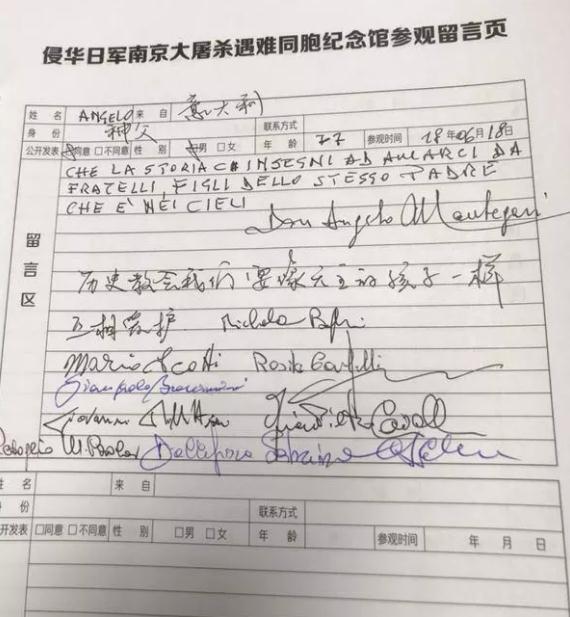 侵华日军南京大屠杀遇难同胞纪念馆参观留言页
姓 名 ANGELO 来 自 意大利
身 份 神父 联系方式
公开发表 同意 □不同意 性 别 男 □女 年 龄 77 参观时间 18年06月18日
CHE LA STORIA CI INSEGNI AD AMARCI DA
FRATELLI, FIGLI DELLO STESSO PADRE
CHE E' NEI CIELI
Don Angelo
留言区
历史教会我们要像天主的孩子一样
互相爱护 Michela
Mario Rosita
Giovanni
名 来 自
份 联系方式
开发表 □同意 □不同意 性 别 □男 □女 年 龄 参观时间 年 月 日